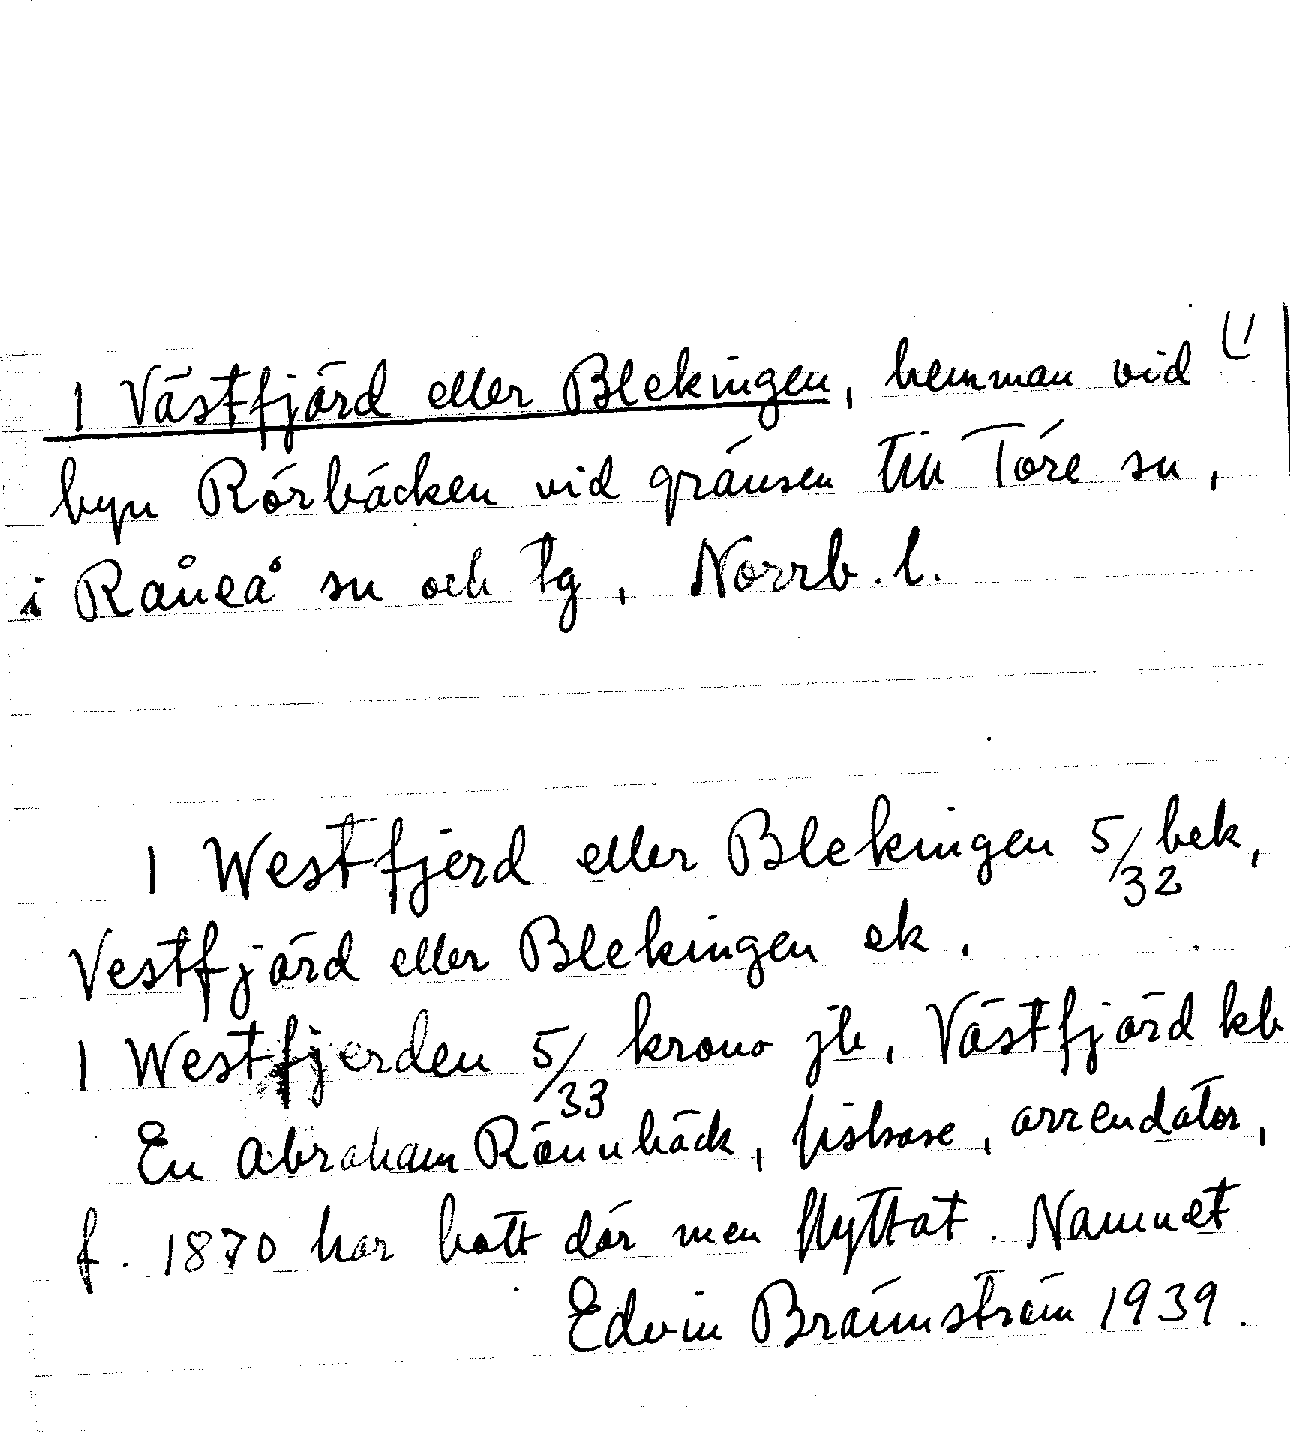 1 Västfjärd eller Blekingen, hemman vid
byn Rörbäcken vid gränsen till Töre sn,
i Råneå sn och tg, Norrb. l.
1 Westfjerd eller Blekingen 5/32 bek,
Vestfjärd eller Blekingen ek.
1 Westfjerden 5/33 krono jb, Västfjärd kb
En Abraham Rönnbäck, fiskare, arrendator,
f. 1870 har bott där men flyttat. Namnet
Edvin Brännström 1939.